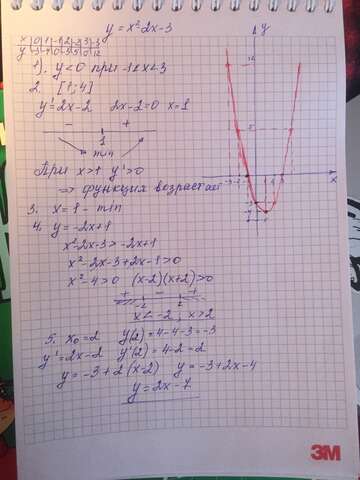 y = x² - 2x - 3
x | 0 | 1 | -1 | 2 | -2 | 3 | -3
y | -3 | -4 | 0 | -3 | 5 | 0 | 12
1). y < 0 при -1 < x < 3
2. [1; 4]
y' = 2x - 2 2x - 2 = 0 x = 1
- +
1
min
При x > 1 y' > 0
=> функция возрастает
3. x = 1 - min
4. y = -2x + 1
x² - 2x - 3 > -2x + 1
x² - 2x - 3 + 2x - 1 > 0
x² - 4 > 0 (x - 2)(x + 2) > 0
+ - +
-2 2
x < -2, x > 2
5. x₀ = 2 y(2) = 4 - 4 - 3 = -3
y' = 2x - 2 y'(2) = 4 - 2 = 2
y = -3 + 2(x - 2) y = -3 + 2x - 4
y = 2x - 7
y
12
5
x
3M